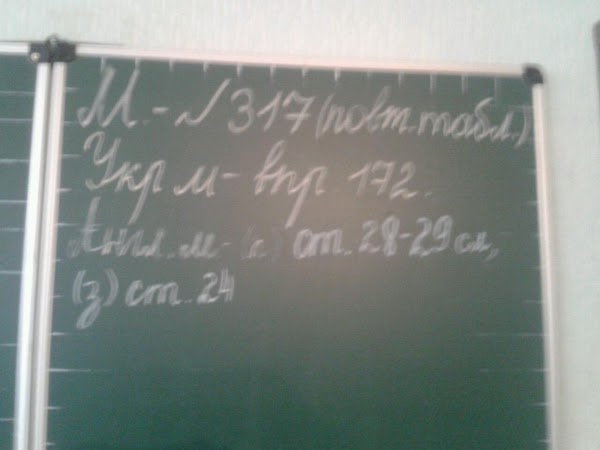 М. - № 317 (повт. табл.)
Укр м - впр. 172.
Англ. м. - (к) ст. 28-29 сл,
(з) ст. 24